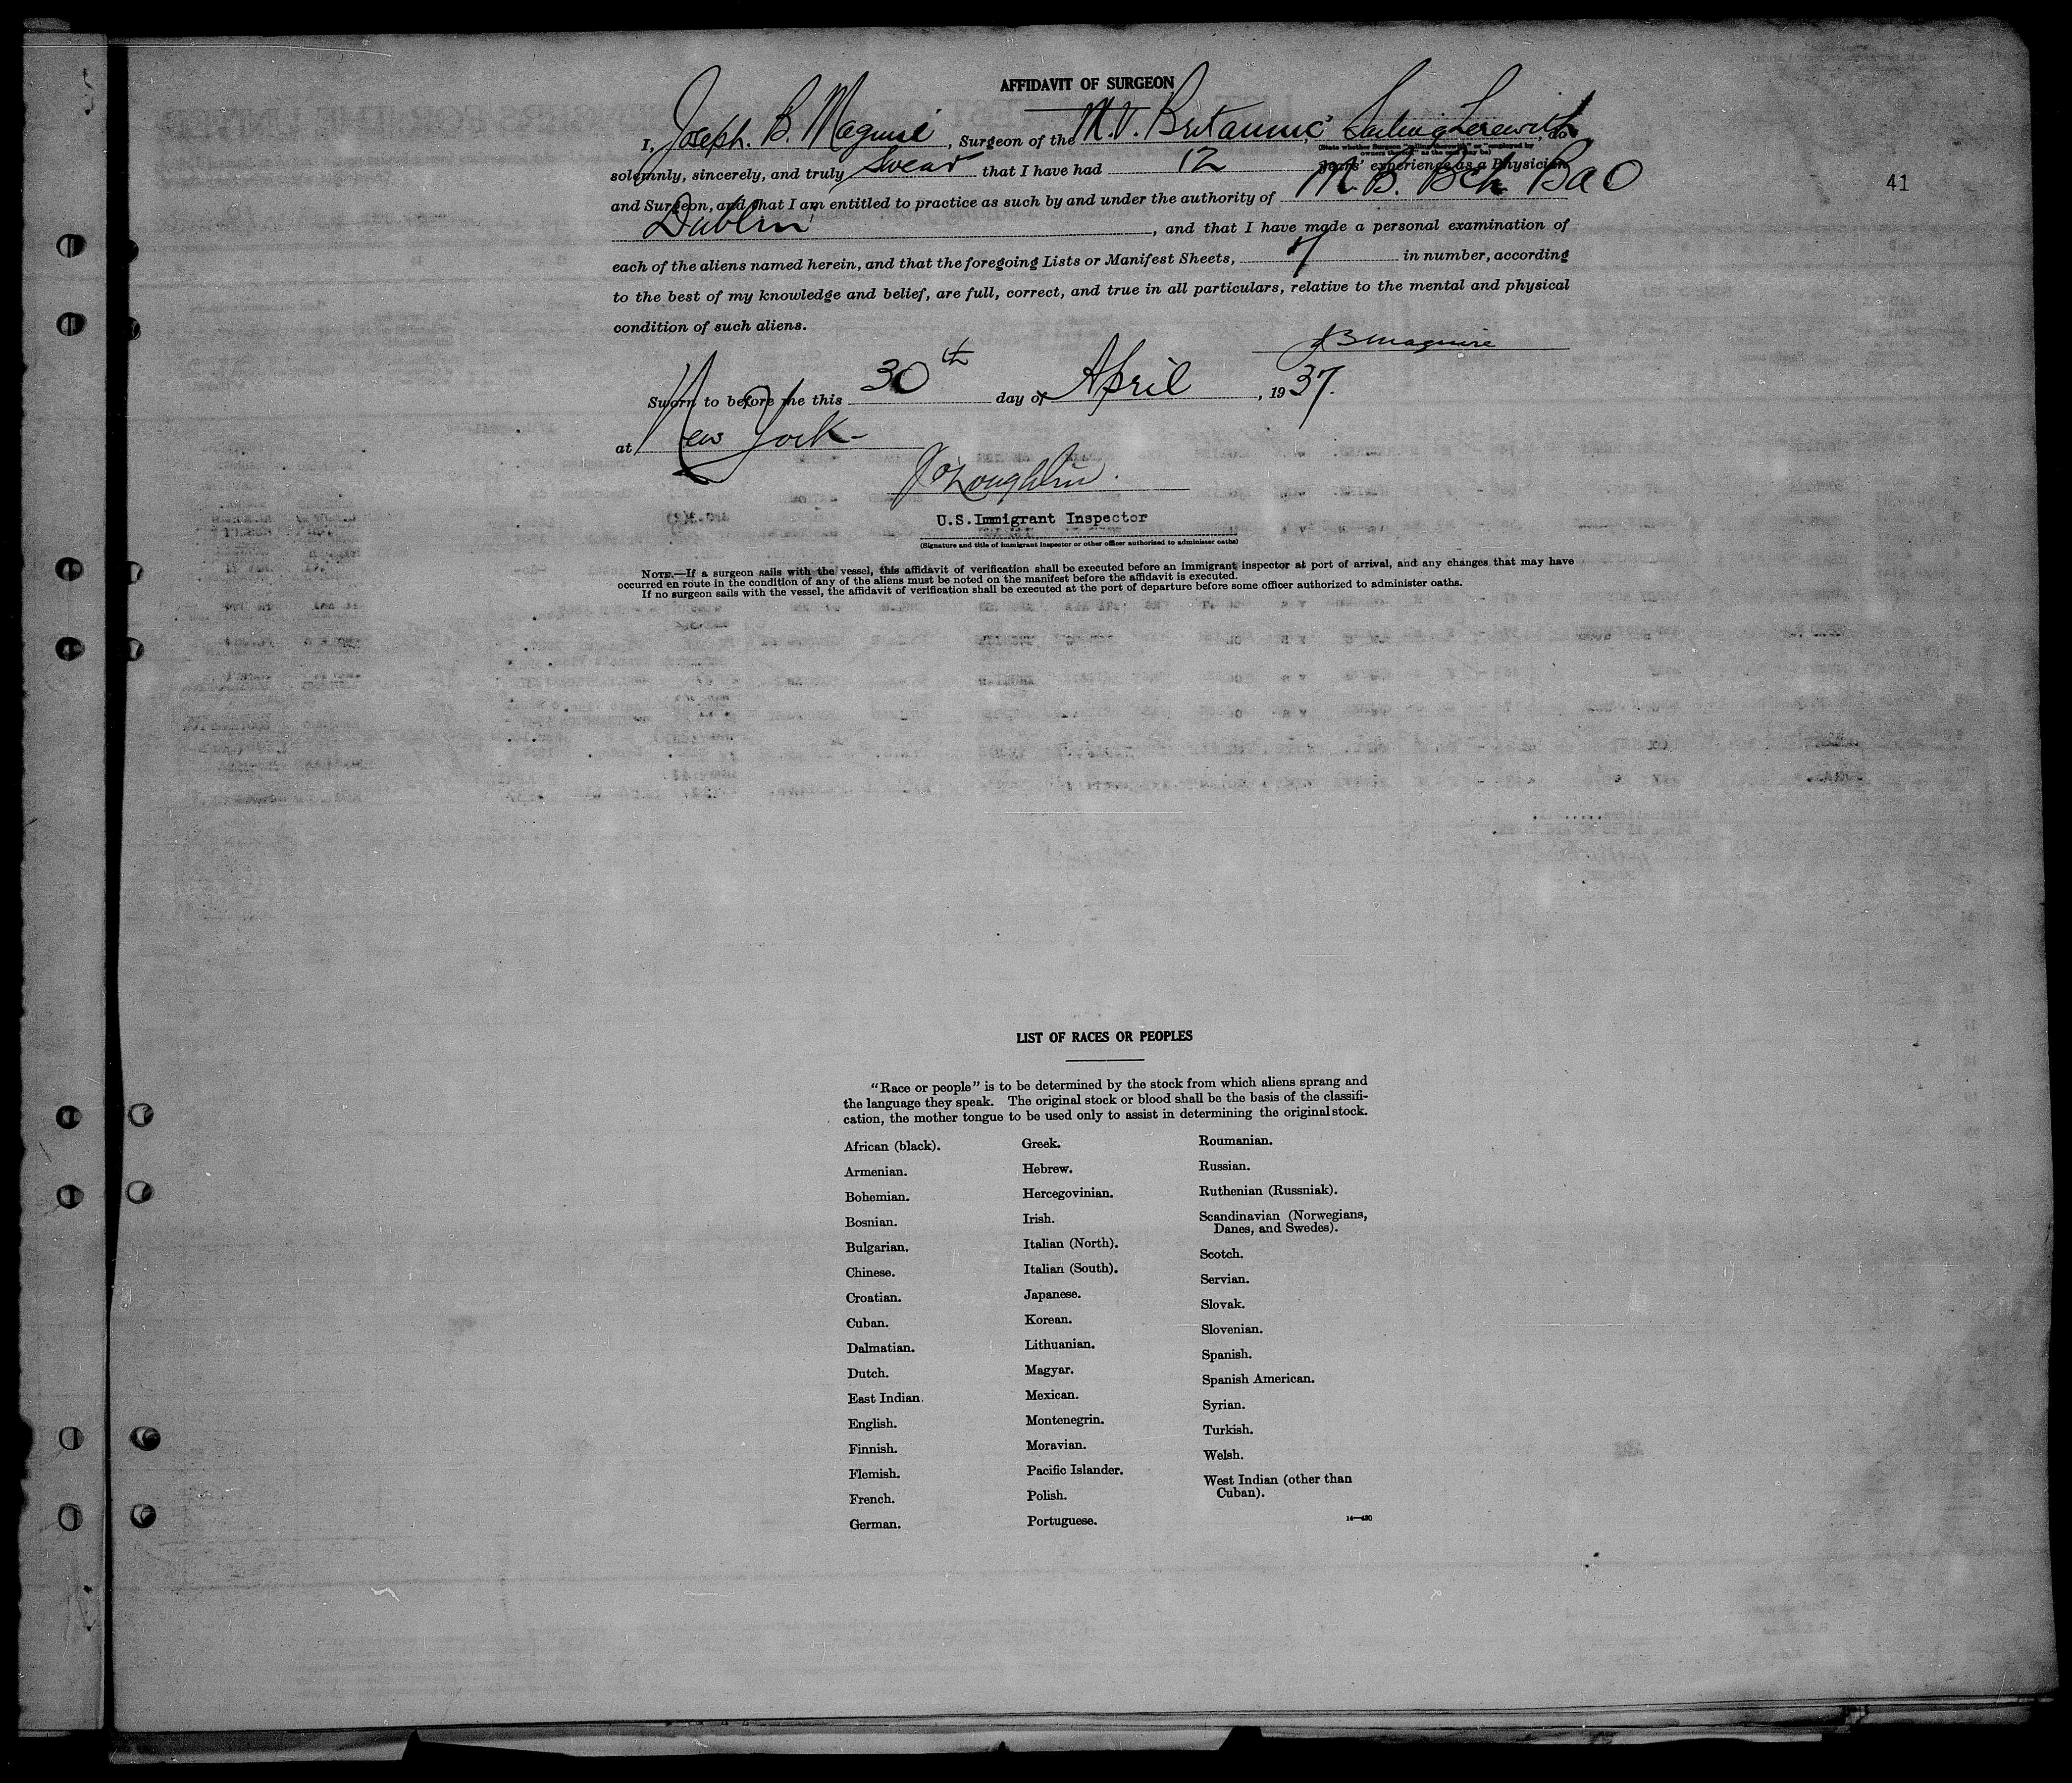 AFFIDAVIT OF SURGEON
I, Joseph. B. Maguire, Surgeon of the M.V. Britannic, Sailing herewith, do
(State whether Surgeon "sailing therewith" or "employed by
owners thereof," as the case may be)
solemnly, sincerely, and truly swear that I have had 12 years' experience as a Physician
and Surgeon, and that I am entitled to practice as such by and under the authority of M.B. Bch BaO
Dublin, and that I have made a personal examination of
each of the aliens named herein, and that the foregoing Lists or Manifest Sheets, 7 in number, according
to the best of my knowledge and belief, are full, correct, and true in all particulars, relative to the mental and physical
condition of such aliens.
JB Maguire
Sworn to before me this 30th day of April, 1937.
at New York
J O'Loughlin.
U.S.Immigrant Inspector
(Signature and title of immigrant inspector or other officer authorized to administer oaths)
NOTE.—If a surgeon sails with the vessel, this affidavit of verification shall be executed before an immigrant inspector at port of arrival, and any changes that may have
occurred en route in the condition of any of the aliens must be noted on the manifest before the affidavit is executed.
If no surgeon sails with the vessel, the affidavit of verification shall be executed at the port of departure before some officer authorized to administer oaths.
41
LIST OF RACES OR PEOPLES
"Race or people" is to be determined by the stock from which aliens sprang and
the language they speak. The original stock or blood shall be the basis of the classifi-
cation, the mother tongue to be used only to assist in determining the original stock.
African (black).
Armenian.
Bohemian.
Bosnian.
Bulgarian.
Chinese.
Croatian.
Cuban.
Dalmatian.
Dutch.
East Indian.
English.
Finnish.
Flemish.
French.
German.
Greek.
Hebrew.
Hercegovinian.
Irish.
Italian (North).
Italian (South).
Japanese.
Korean.
Lithuanian.
Magyar.
Mexican.
Montenegrin.
Moravian.
Pacific Islander.
Polish.
Portuguese.
Roumanian.
Russian.
Ruthenian (Russniak).
Scandinavian (Norwegians,
Danes, and Swedes).
Scotch.
Servian.
Slovak.
Slovenian.
Spanish.
Spanish American.
Syrian.
Turkish.
Welsh.
West Indian (other than
Cuban).
14—430